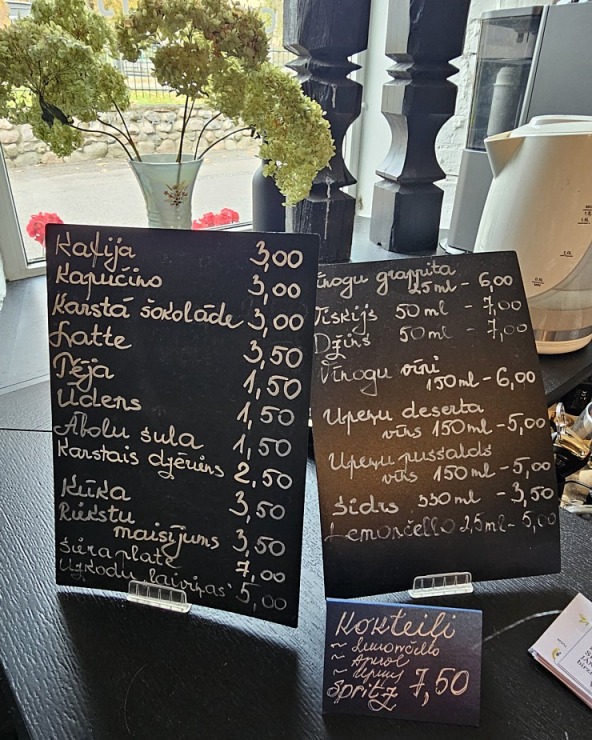 Kafija 3,00
Kapučino 3,00
Karstā šokolāde 3,00
Latte 3,50
Tēja 1,50
Ūdens 1,50
Ābolu sula 1,50
Karstais dzēriens 2,50
Kūka 3,50
Riekstu
maisījums 3,50
Siera plate 7,00
Uzkodu laiviņas 5,00
Vīnogu grappita
25ml - 6,00
Viskijs 50ml - 7,00
Džins 50ml - 7,00
Vīnogu vīni
150ml - 6,00
Upeņu deserta
vīns 150ml - 5,00
Upeņu pussalds
vīns 150ml - 5,00
Sidrs 330ml - 3,50
Lemončello 25ml - 5,00
Kokteiļi
~ Lemončello
~ Aperol
~ Upeņu
Špritz 7,50